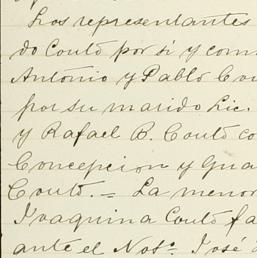 Los representantes
do Couto por si y com
Antonio y Pablo Cou
por su marido Lic.
y Rafael B. Couto co
Concepcion y Gua
Couto. = La menor
Joaquina Couto fa
ante el Not.º José